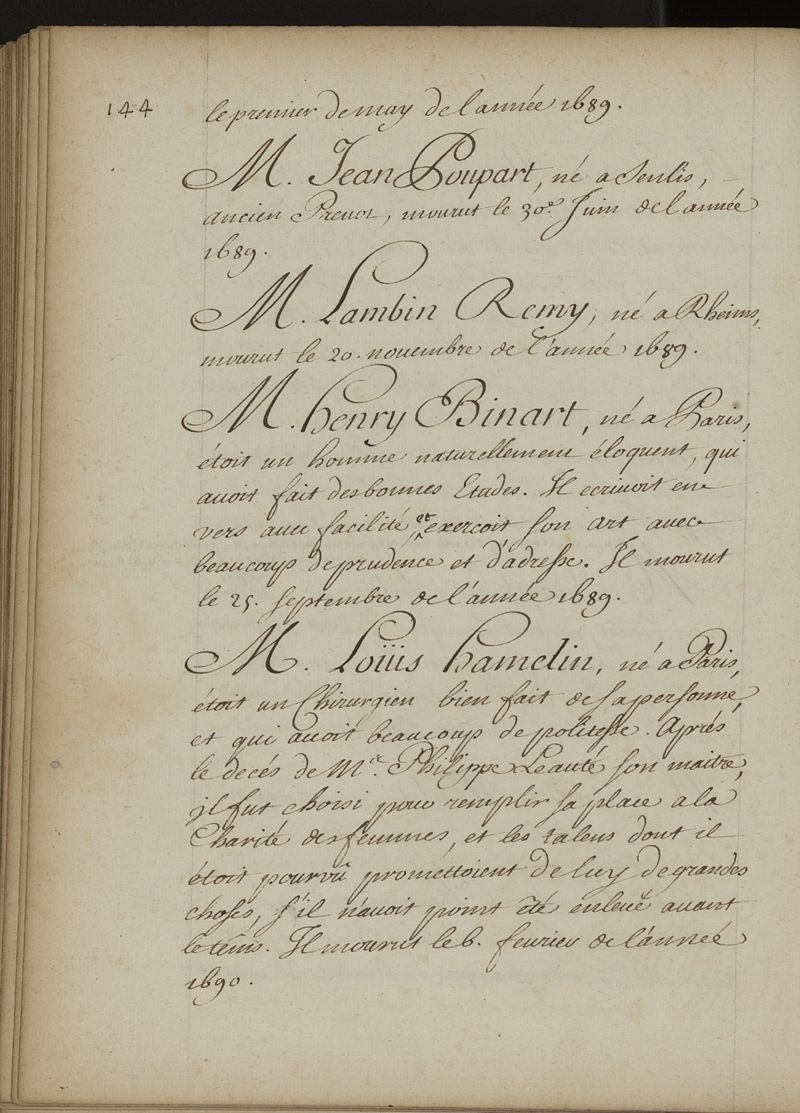 144
le premier de may de l'année 1689.
M. Jean Poupart, né a Senlis,
ancien Prevot, mourut le 30e. Juin de l'année
1689.
M. Lambin Remy, né a Rheims,
mourut le 20. novembre de l'année 1689.
M. henry Binart, né a Paris,
étoit un homme naturellement éloquent, qui
avoit fait des bonnes Etudes. Il ecrivoit en
vers avec facilité et exercoit son art avec
beaucoup de prudence et d'adresse. Il mourut
le 25. septembre de l'année 1689.
M. Loüis hamelin, né a Paris,
étoit un Chirurgien bien fait de sa personne,
et qui avoit beaucoup de politesse. Aprés
le decés de Mr. Philippe Leauté son maitre,
il fut choisi pour remplir sa place a la
Charité des femmes, et les talens dont il
étoit pourvû promettoient de luy de grandes
choses, s'il n'avoit point été enlevé avant
le tems. Il mourut le 6. fevrier de l'année
1690.